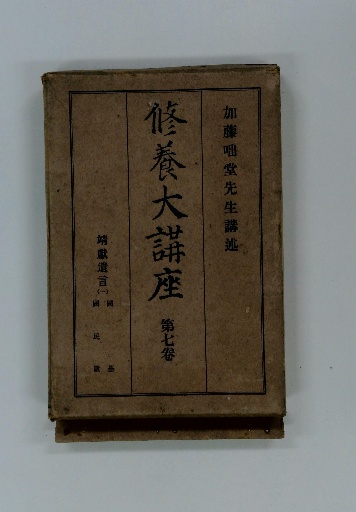 加藤咄堂先生講述
修養大講座 第七卷
靖獻遺言(一)
國民